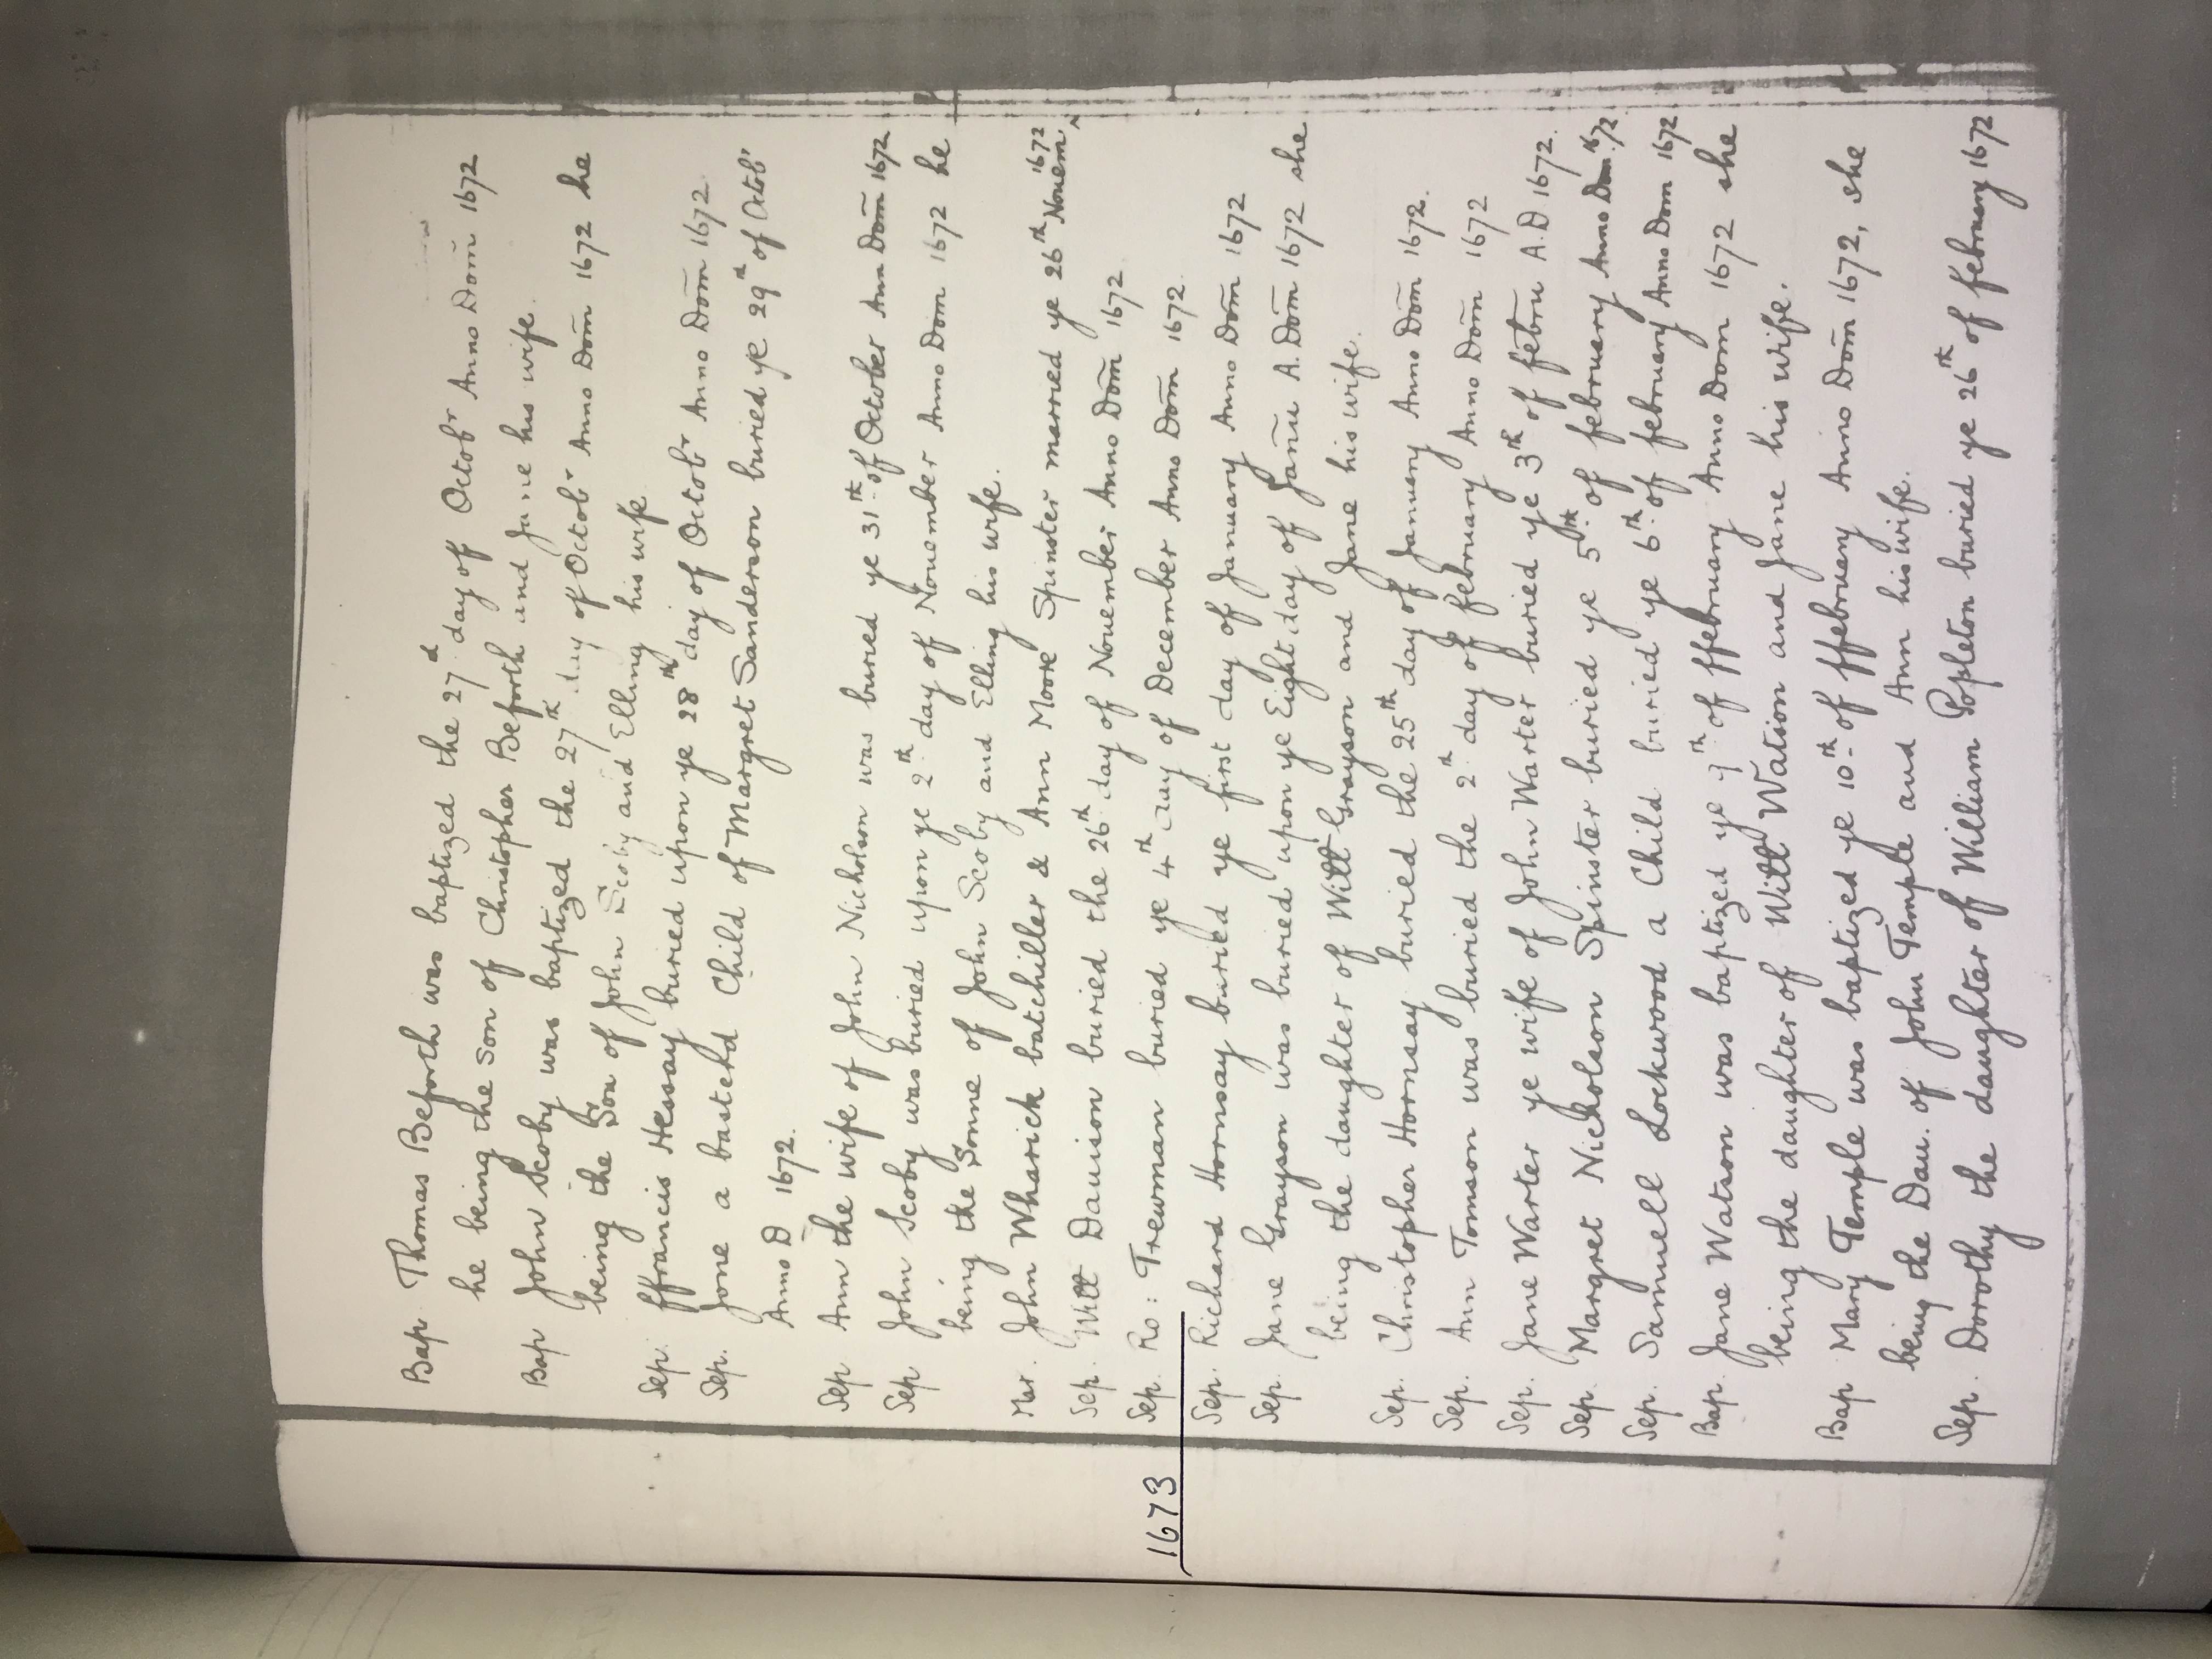 Bap. Thomas Beforth was baptized the 27th day of Octobr Anno Dom̄ 1672
he being the son of Christopher Beforth and Jane his wife.
Bap John Scoby was baptized the 27th day of Octobr Anno Dom̄ 1672 he
being the Son of John Scoby and Elling his wife
Sep. ffrancis Hessay buried upon ye 28th day of Octobr Anno Dom̄ 1672.
Sep. Jone a basterd Child of Margret Sanderson buried ye 29th of Octobr
Anno D 1672.
Sep. Ann the wife of John Nicholson was buried ye 31th of October Ann Dom̄ 1672
Sep John Scoby was buried upon ye 2th day of Nouember Anno Dom 1672 he
being the Sonne of John Scoby and Elling his wife.
Mar. John Wharick batchiller & Ann Moore Spinster married ye 26th Nouem 1672
Sep. Witt Dauison buried the 26th day of Nouember Anno Dom̄ 1672
Sep. Ro: Trewman buried ye 4th day of December Anno Dom̄ 1672.
1673
Sep. Richard Hornsay buried ye first day of January Anno Dom̄ 1672
Sep. Jane Grayson was buried upon ye Eight day of Janū A. Dom̄ 1672 she
being the daughter of Witt Grayson and Jane his wife.
Sep. Christopher Hornsay buried the 25th day of January Anno Dom̄ 1672.
Sep. Ann Tomson was buried the 2th day of february Anno Dom̄ 1672
Sep. Jane Warter ye wife of John Warter buried ye 3th of febru A.D 1672.
Sep. Margret Nicholson Spinster buried ye 5th of february Anno Dom 1672
Sep. Samuell Lockwood a Child buried ye 6th of february Anno Dom 1672
Bap. Jane Watson was baptized ye 9th of ffebruary Anno Dom 1672 she
being the daughter of Witt Watson and Jane his wife.
Bap Mary Temple was baptized ye 10th of ffebruary Anno Dom̄ 1672, she
being the Dau. of John Temple and Ann his wife.
Sep. Dorothy the daughter of William Popleton buried ye 26th of february 1672